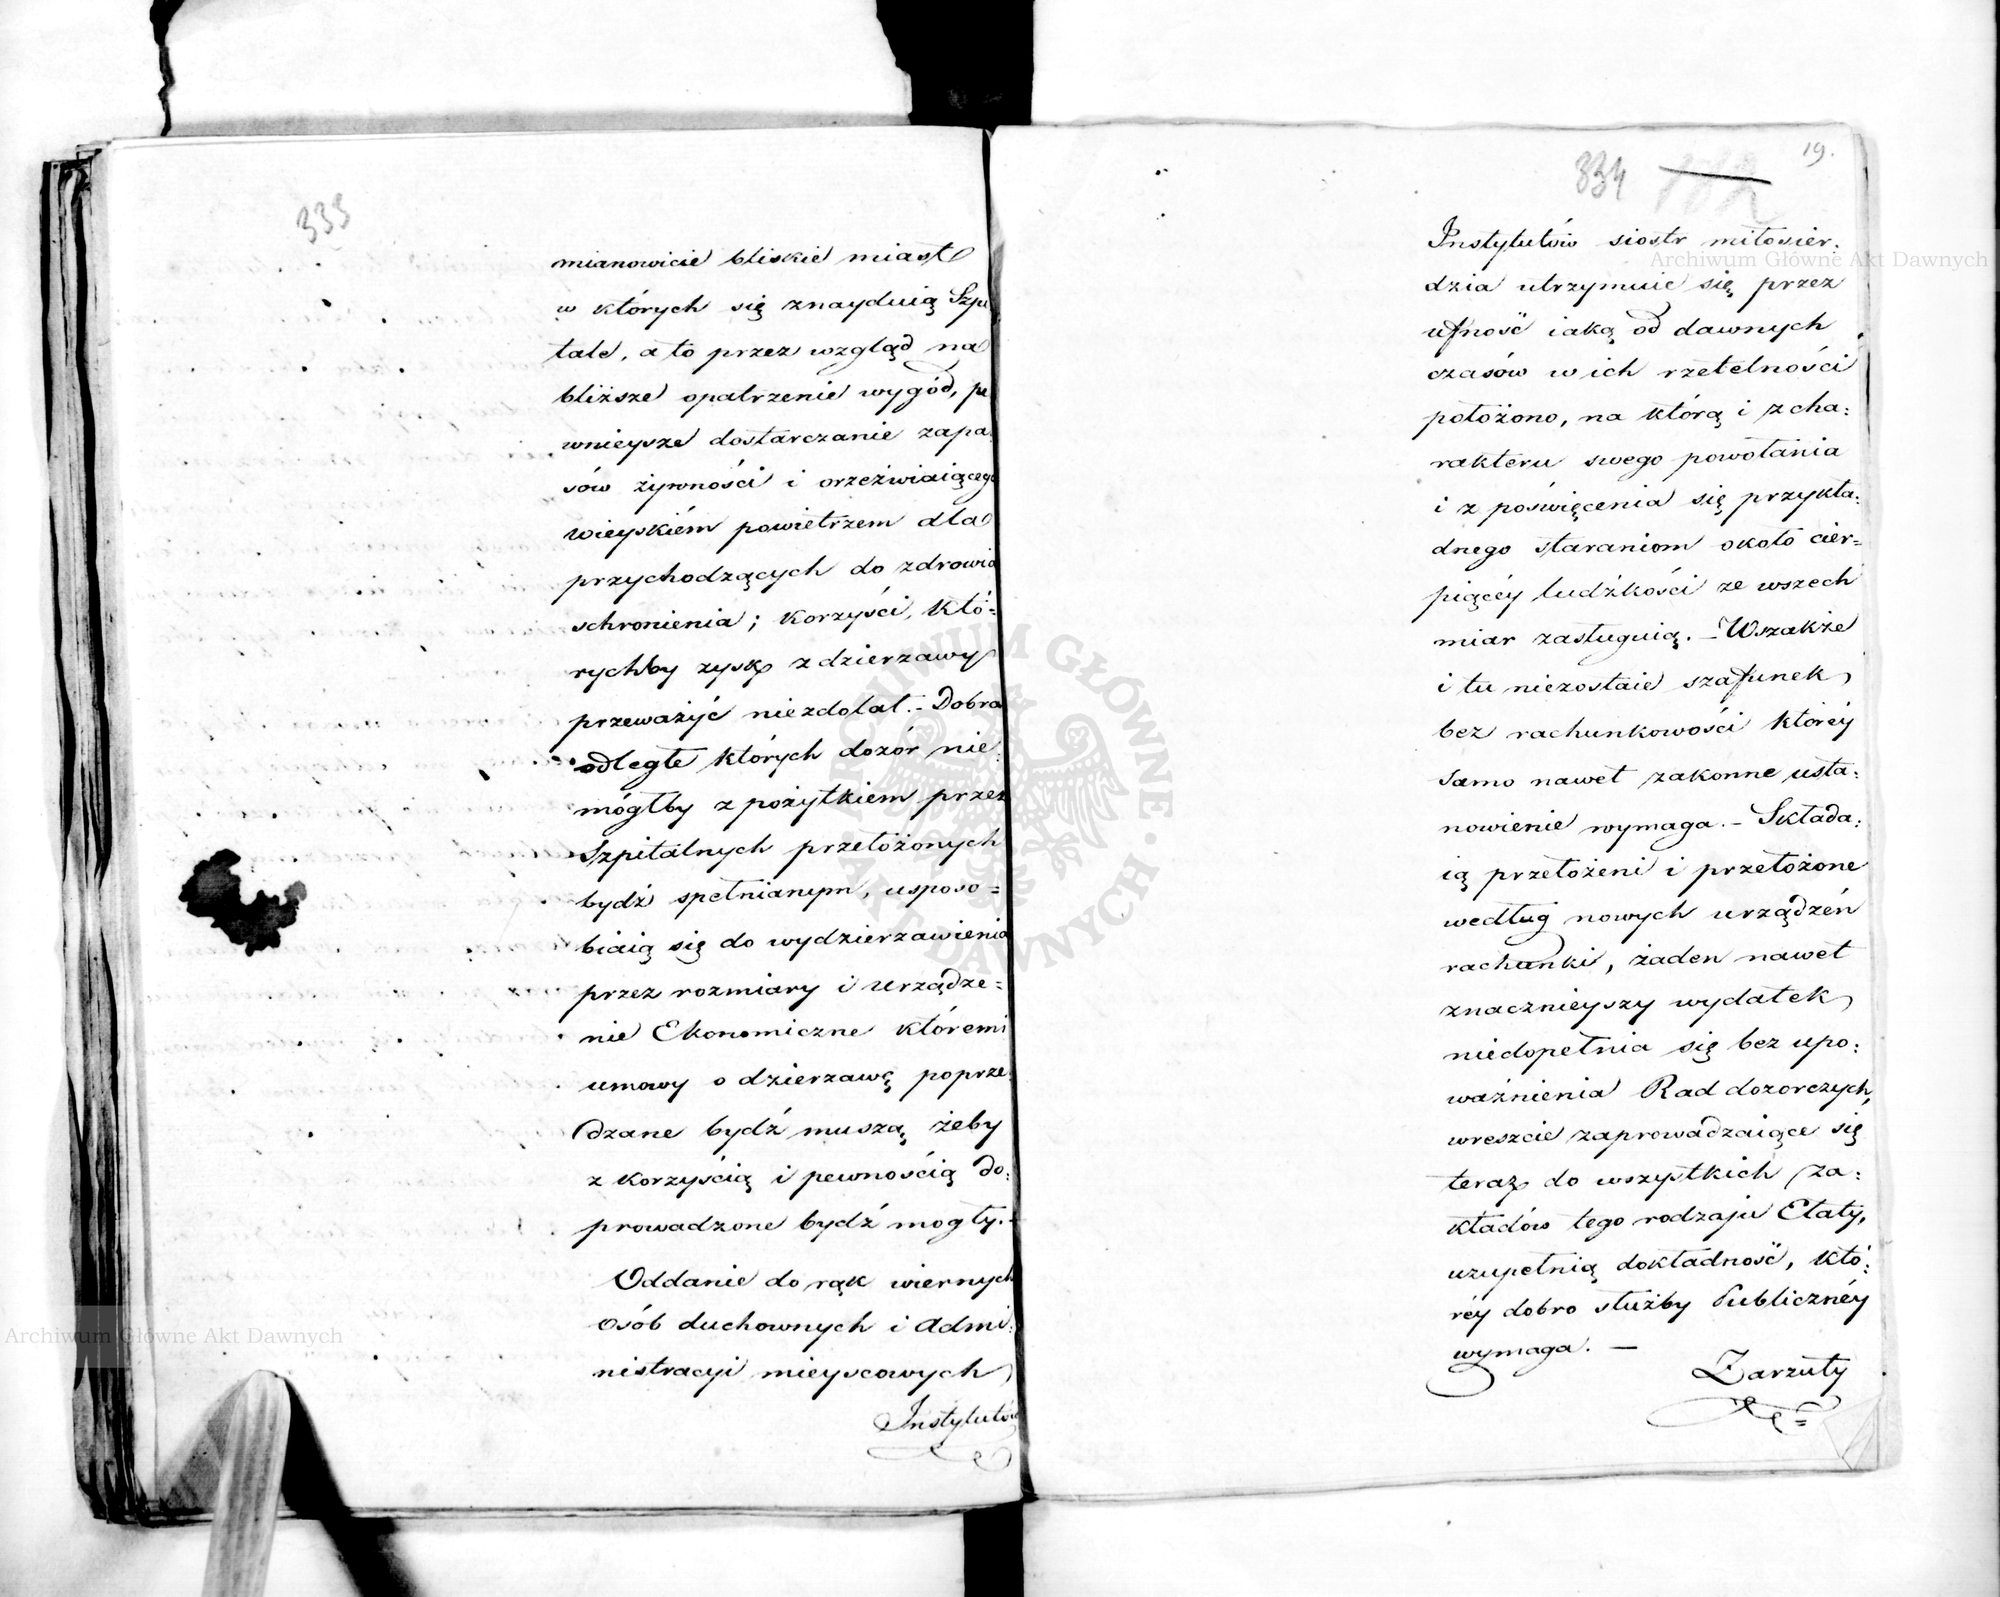 333
mianowicie bliskie miast
w których się znayduią Szpi
tale, a to przez wzgląd na
bliższe opatrzenie wygód, pe
wnieysze dostarczanie zapa:
sów żywności i orzeźwiaiącego
wieyskiém powietrzem dla
przychodzących do zdrowia
schronienia; korzyści, któ-
rychby zysk z dzierzawy
przeważyć niezdołał. – Dobra
odległe których dozór nie:
mógłby z pożytkiem przez
Szpitalnych przełożonych
bydź spełnianym, usposo=
biaią się do wydzierzawienia
przez rozmiary i urządze=
nie Ekonomiczne któremi
umowy o dzierzawę poprze:
dzane bydź muszą, żeby
z korzyścią i pewnością do:
prowadzone bydź mogły. –
Oddanie do rąk wiernych
osób duchownych i Admi:
nistracyi mieyscowych
Instytutów
19.
334
Instytutów siostr miłosier:
dzia utrzymuie się przez
ufność iaką od dawnych
czasów w ich rzetelności
położono, na którą i z cha:
rakteru swego powołania
i z poświęcenia się przykła:
dnego staraniom około cier=
piącéy ludźkości ze wszech
miar zasługuią. – Wszakże
i tu niezostaie szafunek
bez rachunkowości któréy
samo nawet zakonne usta:
nowienie wymaga. – Składa:
ią przełożeni i przełożone
według nowych urządzéń
rachunki, żaden nawet
znacznieyszy wydatek
niedopełnia się bez upo:
ważnienia Rad dozorczych,
wreszcie zaprowadzaiące się
teraz do wszystkich za:
kładów tego rodzaju Etaty,
uzupełnią dokładność, któ:
réy dobro służby Publicznéy
wymaga. –
Zarzuty
Archiwum Główne Akt Dawnych
Archiwum Główne Akt Dawnych
ARCHIWUM GŁÓWNE · AKT DAWNYCH ·